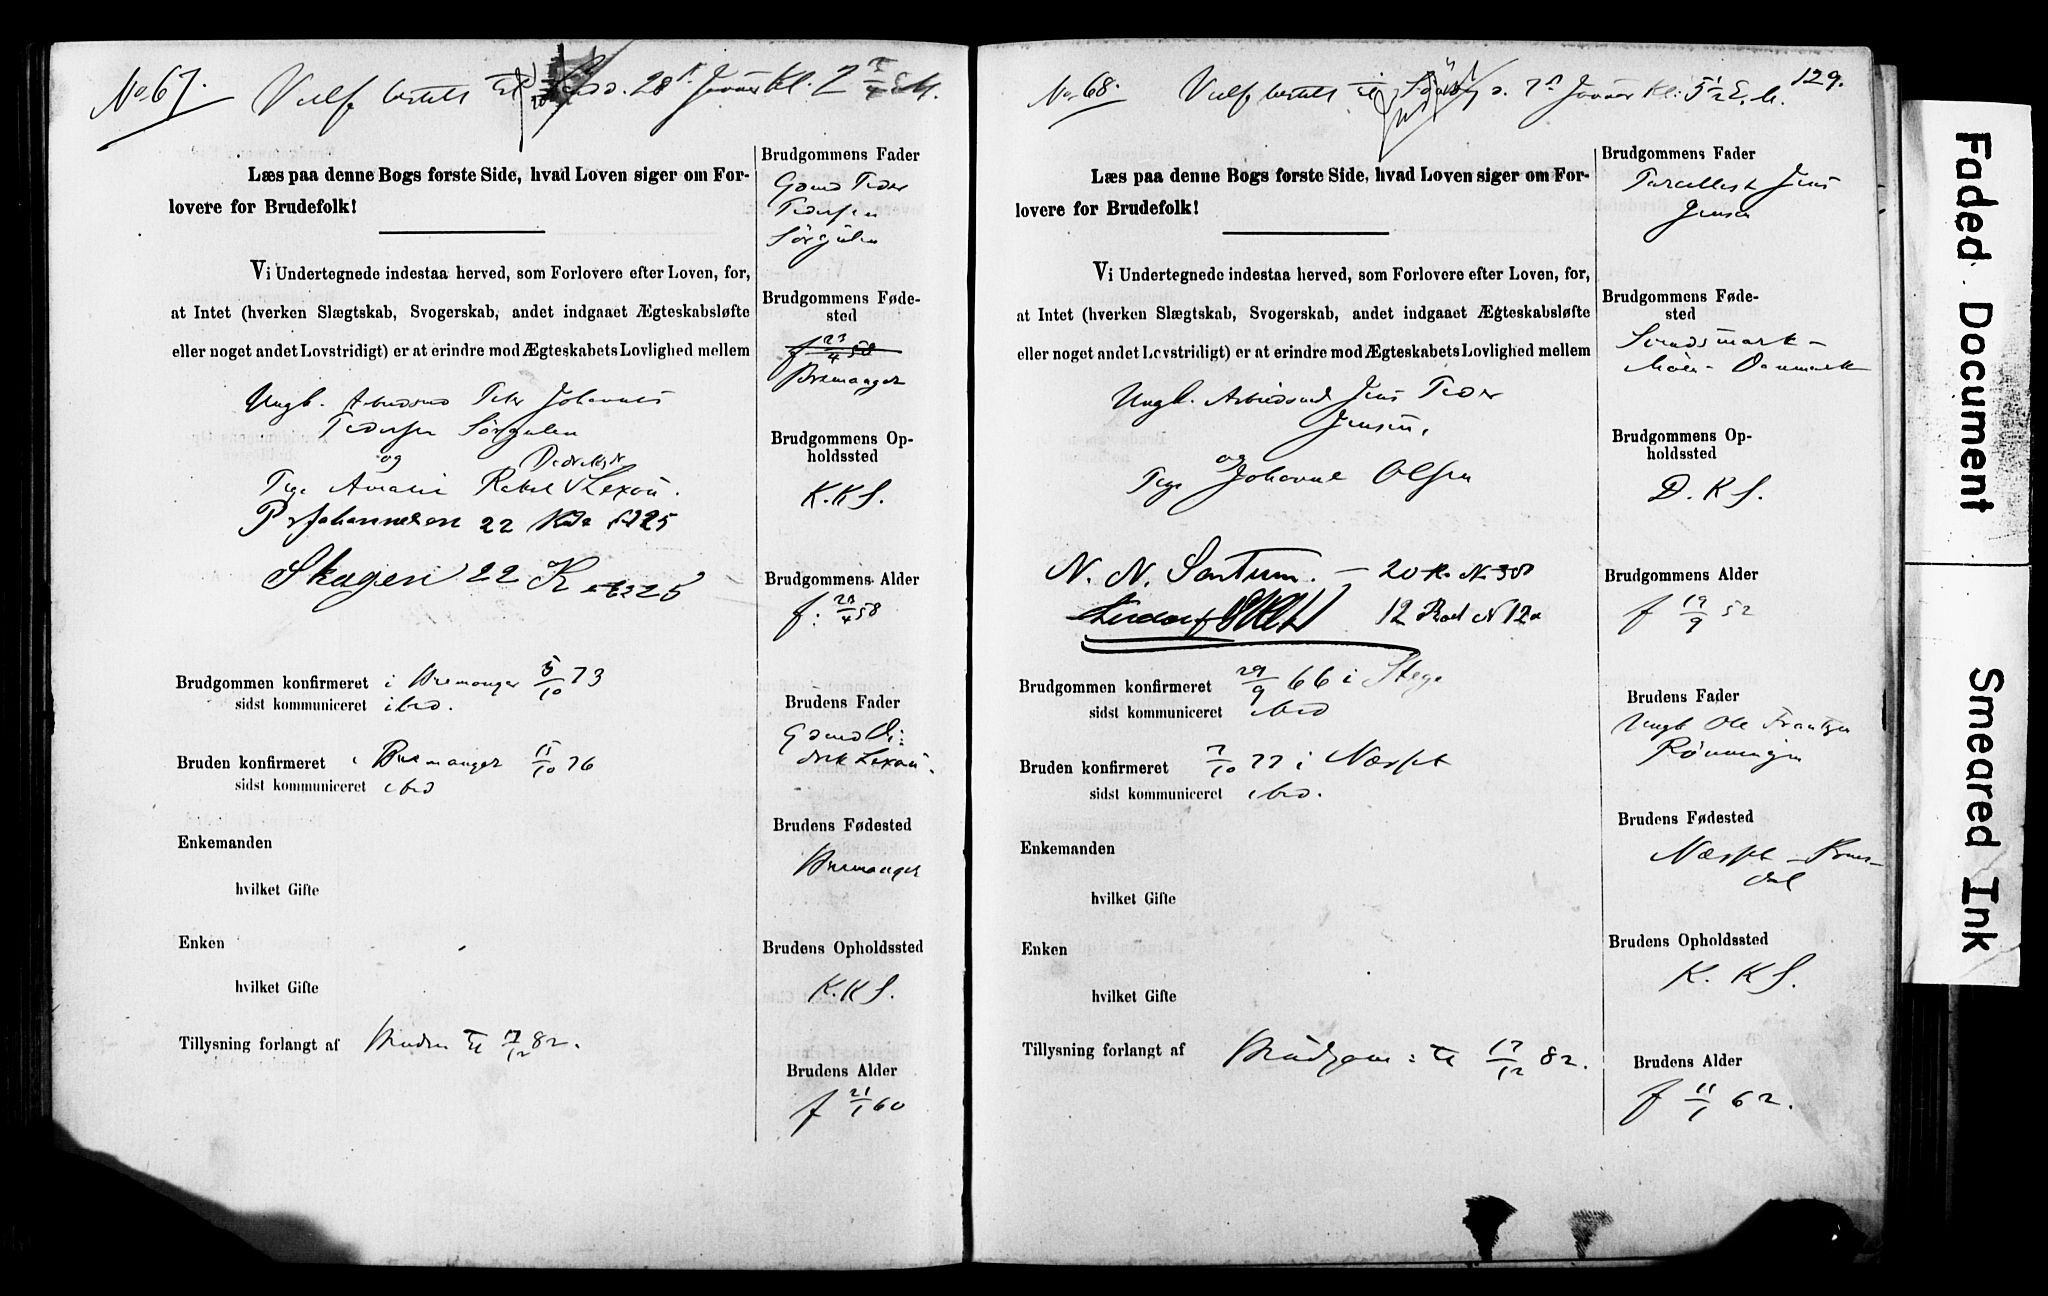 No 67. Vielse bestilt til d. 28de Januar Kl. 2 E.M.
Læs paa denne Bogs første Side, hvad Loven siger om For-
lovere for Brudefolk!
Vi Undertegnede indestaa herved, som Forlovere efter Loven, for,
at Intet (hverken Slægtskab, Svogerskab, andet indgaaet Ægteskabsløfte
eller noget andet Lovstridigt) er at erindre mod Ægteskabets Lovlighed mellem
Ungk. Peter Johannes
Pedersen Sørgulen
og Didriksdr
Pige Amalie Rakel Lexau.
P Johannesen 22 Rode 225
Skagen 22 R 225
Brudgommen konfirmeret i Bremanger 5/10 73
sidst kommuniceret ibid.
Bruden konfirmeret i Bremanger 15/10 76
sidst kommuniceret ibid
Enkemanden
hvilket Gifte
Enken
hvilket Gifte
Tillysning forlangt af Bruden til 17/12 82.
Brudgommens Fader
Gbmd Peder
Pedersen
Sørgulen
Brudgommens Føde-
sted
f 23/4 58
Bremanger
Brudgommens Op-
holdssted
K.K S.
Brudgommens Alder
f: 23/4 58
Brudens Fader
Gbmd Di-
drik Lexau.
Brudens Fødested
Bremanger
Brudens Opholdssted
K.K S.
Brudens Alder
f 21/1 60
129.
No 68. Vielse bestilt til d. 7de Januar Kl: 5 1/2 E.M.
Læs paa denne Bogs første Side, hvad Loven siger om For-
lovere for Brudefolk!
Vi Undertegnede indestaa herved, som Forlovere efter Loven, for,
at Intet (hverken Slægtskab, Svogerskab, andet indgaaet Ægteskabsløfte
eller noget andet Lovstridigt) er at erindre mod Ægteskabets Lovlighed mellem
Ungk. Arbeidsmd Jens Peder
Jensen,
og
Pige Johanne Olsen
N. N. Sontum. – 20 R. N. 30
12 Rod N 12a
Brudgommen konfirmeret 29/9 66 i Stege
sidst kommuniceret ibid
Bruden konfirmeret 7/10 77 i Næsset
sidst kommuniceret ibid.
Enkemanden
hvilket Gifte
Enken
hvilket Gifte
Tillysning forlangt af Brudgom: til 17/12 82.
Brudgommens Fader
Parcellist Jens
Jensen
Brudgommens Føde-
sted
Møen – Danmark
Brudgommens Op-
holdssted
D. K S.
Brudgommens Alder
f 19/9 52
Brudens Fader
Ungk Ole Frantzen
Rønningen
Brudens Fødested
Næsset – Roms-
dal
Brudens Opholdssted
K. K S.
Brudens Alder
f 11/1 62.
Faded Document
Smeared Ink